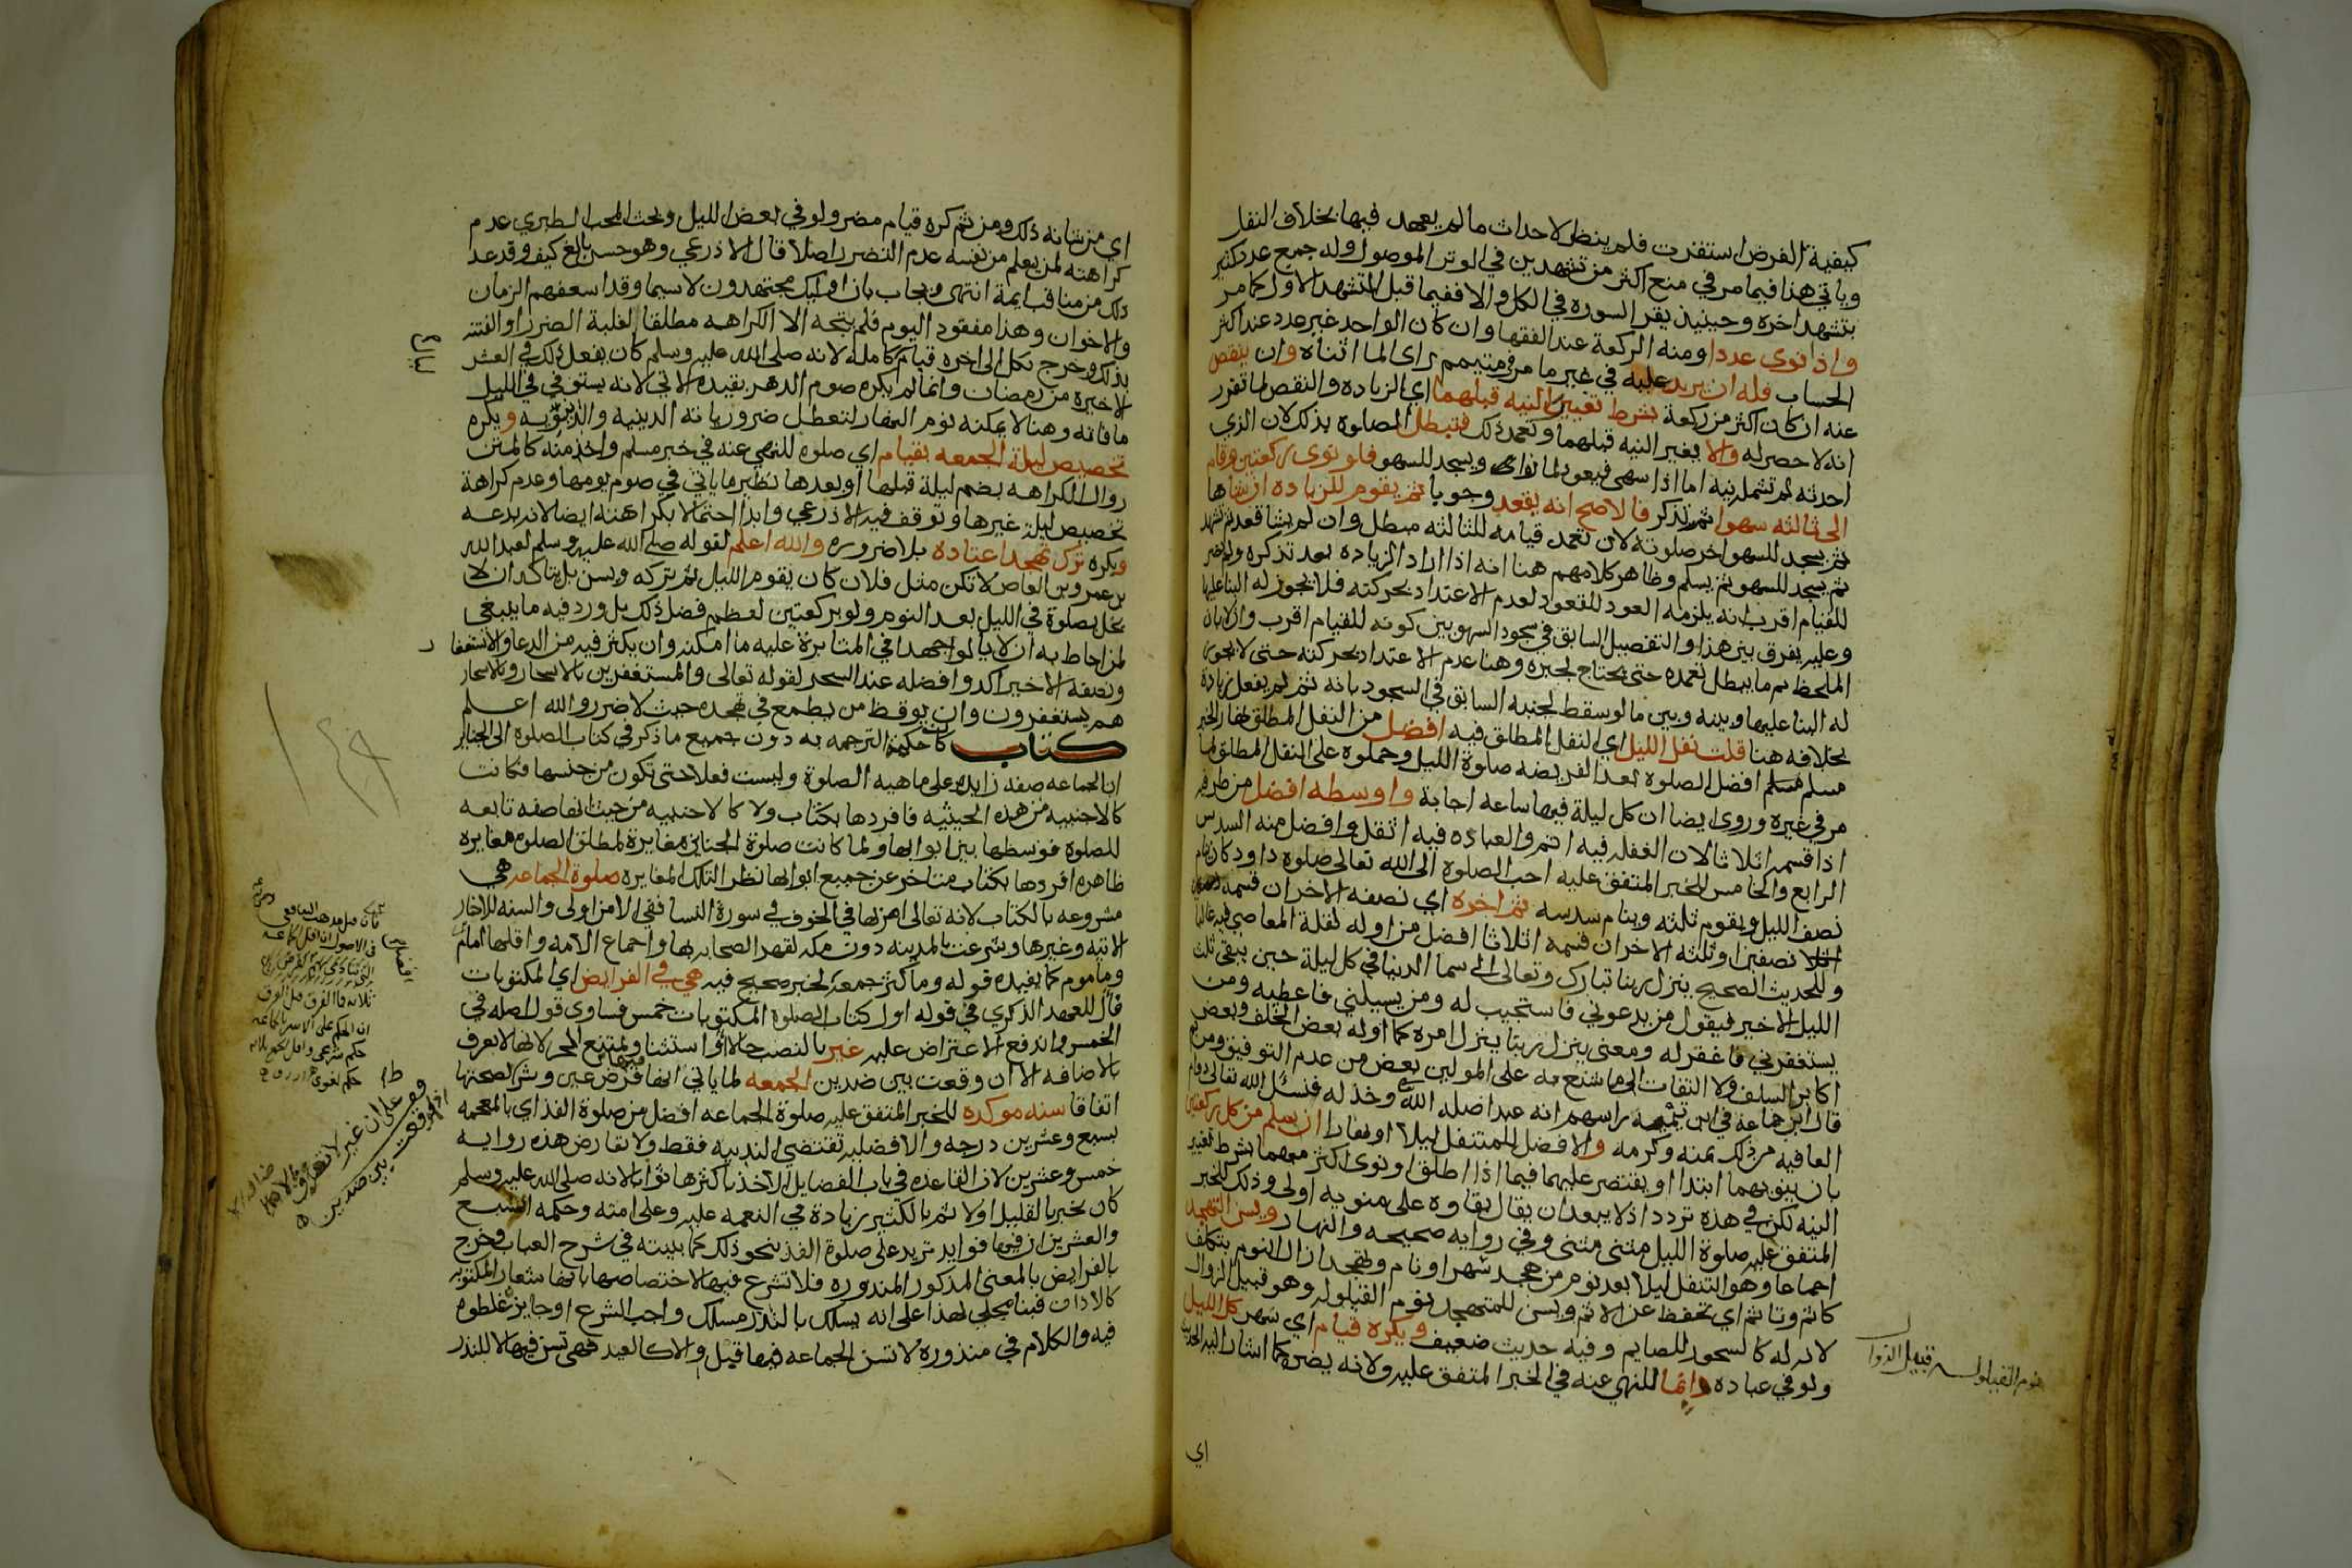 كيفية الفرض استقرت فلم ينظر لاحداث ما لم يعهد فيها بخلاف النفل
وياتي هذا فيما مر في منع اكثر من تشهدين في الوتر الموصول وله جمع عدد كثير
بتشهد اخره وحينيذ يقرا السورة في الكل والا ففيما قبل التشهد الاول كما مر
واذا نوى عددا ومنه الركعة عند الفقها وان كان الواحد غير عدد عند اكثر
الحساب فله ان يزيد عليه في غير ما مر في متيمم راى الما اثناه وان ينقص
عنه ان كان اكثر من ركعة بشرط تغيير النيه قبلهما اي الزيادة والنقص لما تقرر
انه لا حصر له والا يغير النيه قبلهما وتعمد ذلك فتبطل الصلوة بذلك لان الذي
احدثه لم تشمله نيه اما اذا سهى فيعود لما نواه ويسجد للسهو فلو نوى ركعتين فقام
الى ثالثه سهوا ثم تذكر فالاصح انه يقعد وجوبا ثم يقوم للزيادة ان شاها
ثم يسجد للسهو اخر صلوته لان تعمد قيامه للثالثه مبطل وان لم يشا قعد ثم تشهد
ثم يسجد للسهو ثم يسلم وظاهر كلامهم هنا انه اذا اراد الزيادة بعد تذكره ولم يصر
للقيام اقرب انه يلزمه العود للقعود لعدم الاعتداد بحركته فلا يجوز له البنا عليها
وعليه يفرق بين هذا والتفصيل السابق في سجود السهو بين كونه للقيام اقرب والا بان
الملحظ ثم ما يبطل تعمده حتى يحتاج لجبره وهنا عدم الاعتداد بحركته حتى لا يجوز
له البنا عليها وبينه وبين ما لو سقط لجنبه السابق في السجود بانه ثم لم يفعل زيادة
بخلافه هنا قلت نفل الليل اي النفل المطلق فيه افضل من النفل المطلق نهارا لخبر
مسلم افضل الصلوة بعد الفريضه صلوة الليل وحملوه على النفل المطلق لما
مر في غيره وروى ايضا ان كل ليلة فيها ساعه اجابة واوسطه افضل من طرفيه
اذا قسمه اثلاثا لان الغفله فيه اتم والعبادة فيه اثقل وافضل منه السدس
الرابع والخامس للخبر المتفق عليه احب الصلوة الى الله تعالى صلوة داود كان ينام
نصف الليل ويقوم ثلثه وينام سدسه ثم اخره اي نصفه الاخر ان قسمه
نصفين او ثلثه الاخر ان قسمه اثلاثا افضل من اوله لقلة المعاصي فيه غالبا
وللحديث الصحيح ينزل ربنا تبارك وتعالى الى سما الدنيا في كل ليلة حين يبقى ثلث
الليل الاخير فيقول من يدعوني فاستجيب له ومن يسيلني فاعطيه ومن
يستغفرني فاغفر له ومعنى ينزل ربنا ينزل امره كما اوله بعض الخلف وبعض
اكابر السلف ولا التفات الى ما شنع به على المولين بعض من عدم التوفيق ومن ثم
قال ابن جماعه في ابن تيميه راسهم انه عبد اضله الله وخذله فنسئل الله تعالى دوام
العافيه من ذلك بمنه وكرمه والافضل للمتنفل ليلا او نهارا ان يسلم من كل ركعتين
بان ينويهما ابتدا او يقتصر عليهما فيما اذا اطلق او نوى اكثر منهما بشرط تغيير
النيه لكن في هذه تردد اذ لا يبعد ان يقال بقاوه على منويه اولى وذلك للخبر
المتفق عليه صلوة الليل مثنى مثنى وفي روايه صحيحه والنهار ويسن التهجد
اجماعا وهو التنفل ليلا بعد نوم من هجد سهر او نام وتهجد ازال النوم بتكلف
كاثم وتاثم اي تحفظ عن الاثم ويسن للمتهجد نوم القيلوله وهو قبيل الزوال
لانه له كالسحور للصايم وفيه حديث ضعيف ويكره قيام اي سهر كل الليل
ولو في عبادة دايما للنهي عنه في الخبر المتفق عليه ولانه يضره كما اشار اليه الحديث
نوم القيلوله قبيل الزوال
اي
اي من شانه ذلك ومن ثم كره قيام مضر ولو في بعض الليل وبحث المحب الطبري عدم
كراهته لمن يعلم من نفسه عدم التضرر اصلا قال الاذرعي وهو حسن بالغ كيف وقد عد
ذلك من مناقب ايمة انتهى ويجاب بان اوليك مجتهدون لاسيما وقد اسعفهم الزمان
والاخوان وهذا مفقود اليوم فلم يتجه الا الكراهه مطلقا لغلبة الضرر او الفتنه
بذلك وخرج بكل الى اخره قيام كامله لانه صلى الله عليه وسلم كان يفعل ذلك في العشر
الاخيرة من رمضان وانما لم يكره صوم الدهر بقيده الاتي لانه يستوفي في الليل
ما فاته وهنا لا يمكنه نوم النهار لتعطل ضرورياته الدينيه والدنيويه ويكره
تخصيص ليلة الجمعه بقيام اي صلوة للنهي عنه في خبر مسلم واخذ منه كالمتن
زوال الكراهه بضم ليلة قبلها او بعدها نظير ما ياتي في صوم يومها وعدم كراهة
تخصيص ليلة غيرها وتوقف فيه الاذرعي وابدا احتمالا بكراهته ايضا لانه بدعه
ويكره ترك تهجد اعتاده بلا ضرورة والله اعلم لقوله صلى الله عليه وسلم لعبد الله
بن عمرو بن العاص لا تكن مثل فلان كان يقوم الليل ثم تركه ويسن بل يتاكد ان لا
يخل بصلوة في الليل بعد النوم ولو بركعتين لعظم فضل ذلك بل ورد فيه ما ينبغي
لمن احاط به ان لا يالو اجهدا في المثابرة عليه ما امكنه وان يكثر فيه من الدعا والاستغفار
ونصفه الاخير اكد وافضله عند السحر لقوله تعالى والمستغفرين بالاسحار وبالاسحار
هم يستغفرون وان يوقظ من يطمع في تهجده حيث لا ضرر والله اعلم
كتاب كان حكمة الترجمه به دون جميع ما ذكر في كتاب الصلوة الى الجنايز
ان الجماعه صفه زايدة على ماهيه الصلوة وليست فعلا حتى تكون من جنسها فكانت
كالاجنبيه من هذه الحيثيه فافردها بكتاب ولا كالاجنبيه من حيث انها صفه تابعه
للصلوة فوسطها بين ابوابها ولما كانت صلوة الجنازة مغايرة لمطلق الصلوة مغايره
ظاهره افردها بكتاب متاخر عن جميع ابوابها نظرا لتلك المغايره صلوة الجماعه هي
مشروعه بالكتاب لانه تعالى امر بها في الخوف في سورة النسا ففي الامن اولى والسنه للاخبار
الاتيه وغيرها وشرعت بالمدينه دون مكه لقهر الصحابه بها واجماع الامه واقلها امام
وماموم كما يفيده قوله وما كثر جمعه لخبر صحيح فيه هي في الفرايض اي المكتوبات
فال للعهد الذكري في قوله اول كتاب الصلوة المكتوبات خمس فساوى قول اصله في
الخمس واندفع الاعتراض عليه غير بالنصب حالا او استثنا ويمتنع الجر لانها لا تعرف
بالاضافه الا ان وقعت بين ضدين الجمعه لما ياتي انها فيها فرض عين وشرط لصحتها
اتفاقا سنه موكده للخبر المتفق عليه صلوة الجماعه افضل من صلوة الفذ اي بالمعجمه
بسبع وعشرين درجه والافضليه تقتضي الندبيه فقط ولا تعارض هذه روايه
خمس وعشرين لان القاعده في باب الفضايل الاخذ باكثرها ثوابا لانه صلى الله عليه وسلم
كان يخبر بالقليل اولا ثم بالكثير زيادة في النعمه عليه وعلى امته وحكمه السبع
والعشرين ان فيها فوايد تزيد على صلوة الفذ بنحو ذلك كما بينته في شرح العباب وخرج
بالفرايض بالمعنى المذكور المنذوره فلا تشرع فيها لاختصاصها بانها شعار المكتوبه
كالاذان فبنا مجلي لهذا على انه يسلك بالنذر مسلك واجب الشرع او جايزه غلطوه
فيه والكلام في منذوره لا تسن الجماعه فيها قبل والا كالعيد فهي تسن فيها لا للنذر